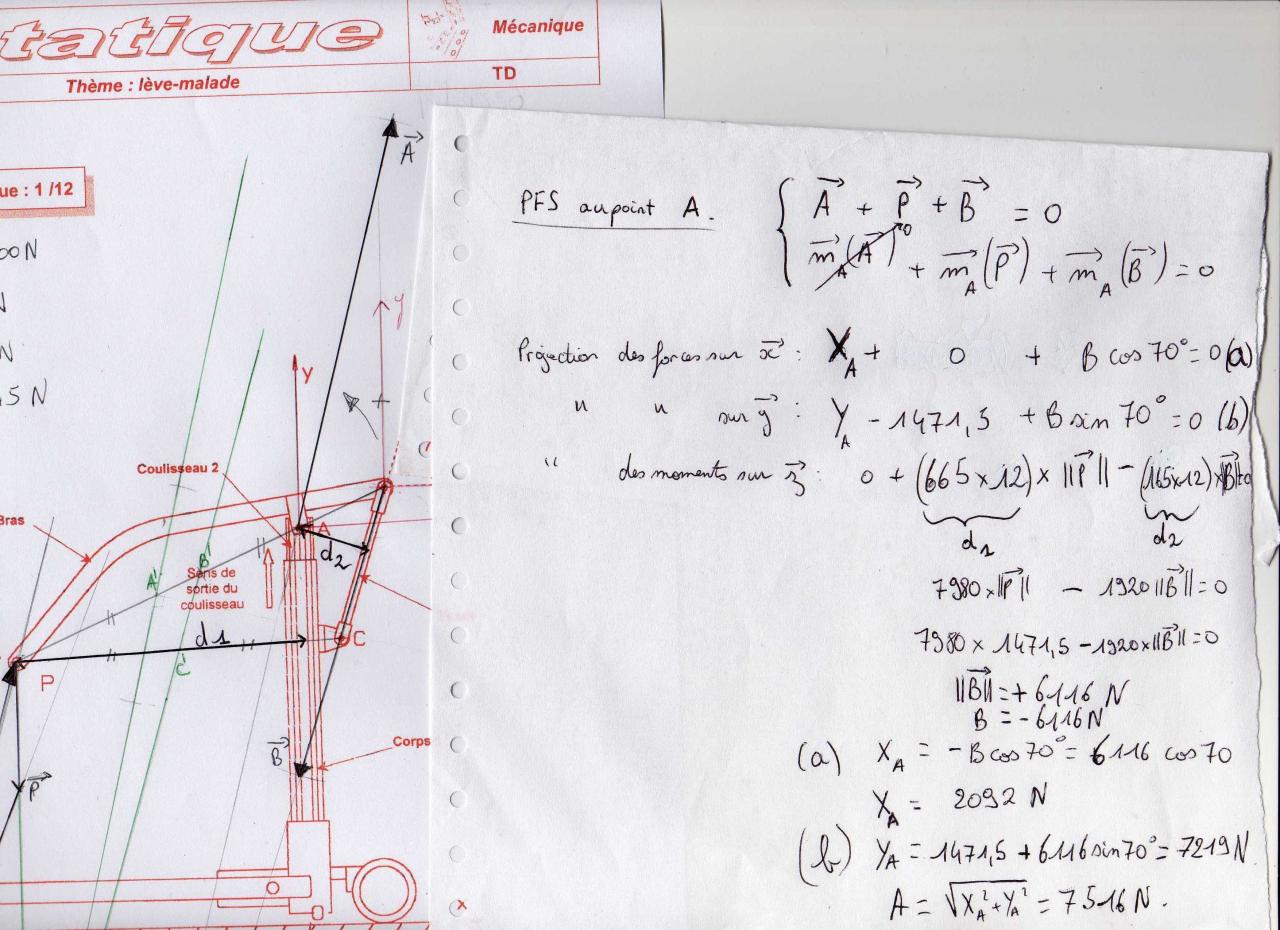 tatique
Mécanique
Thème : lève-malade
TD
ue : 1 /12
00N
N
N
,5 N
A→
y
Y
Coulisseau 2
Bras
A
d2
A'
B'
Sens de
sortie du
coulisseau
d1
C'
C
P
B→
Corps
P→
PFS au point A.
A→ + P→ + B→ = 0
m→A(A→) 0 + m→A(P→) + m→A(B→) = 0
Projection des forces sur x→ : XA + 0 + B cos 70° = 0 (a)
" " sur y→ : YA - 1471,5 + B sin 70° = 0 (b)
" des moments sur z→ : 0 + (665×12) × ||P→|| - (165×12) × ||B→|| = 0
d1 d2
7980 × ||P→|| - 1920 ||B→|| = 0
7980 × 1471,5 - 1920 × ||B→|| = 0
||B→|| = + 6116 N
B = - 6116 N
(a) XA = - B cos 70° = 6116 cos 70
XA = 2092 N
(b) YA = 1471,5 + 6116 sin 70° = 7219 N
A = √XA² + YA² = 7516 N.
x